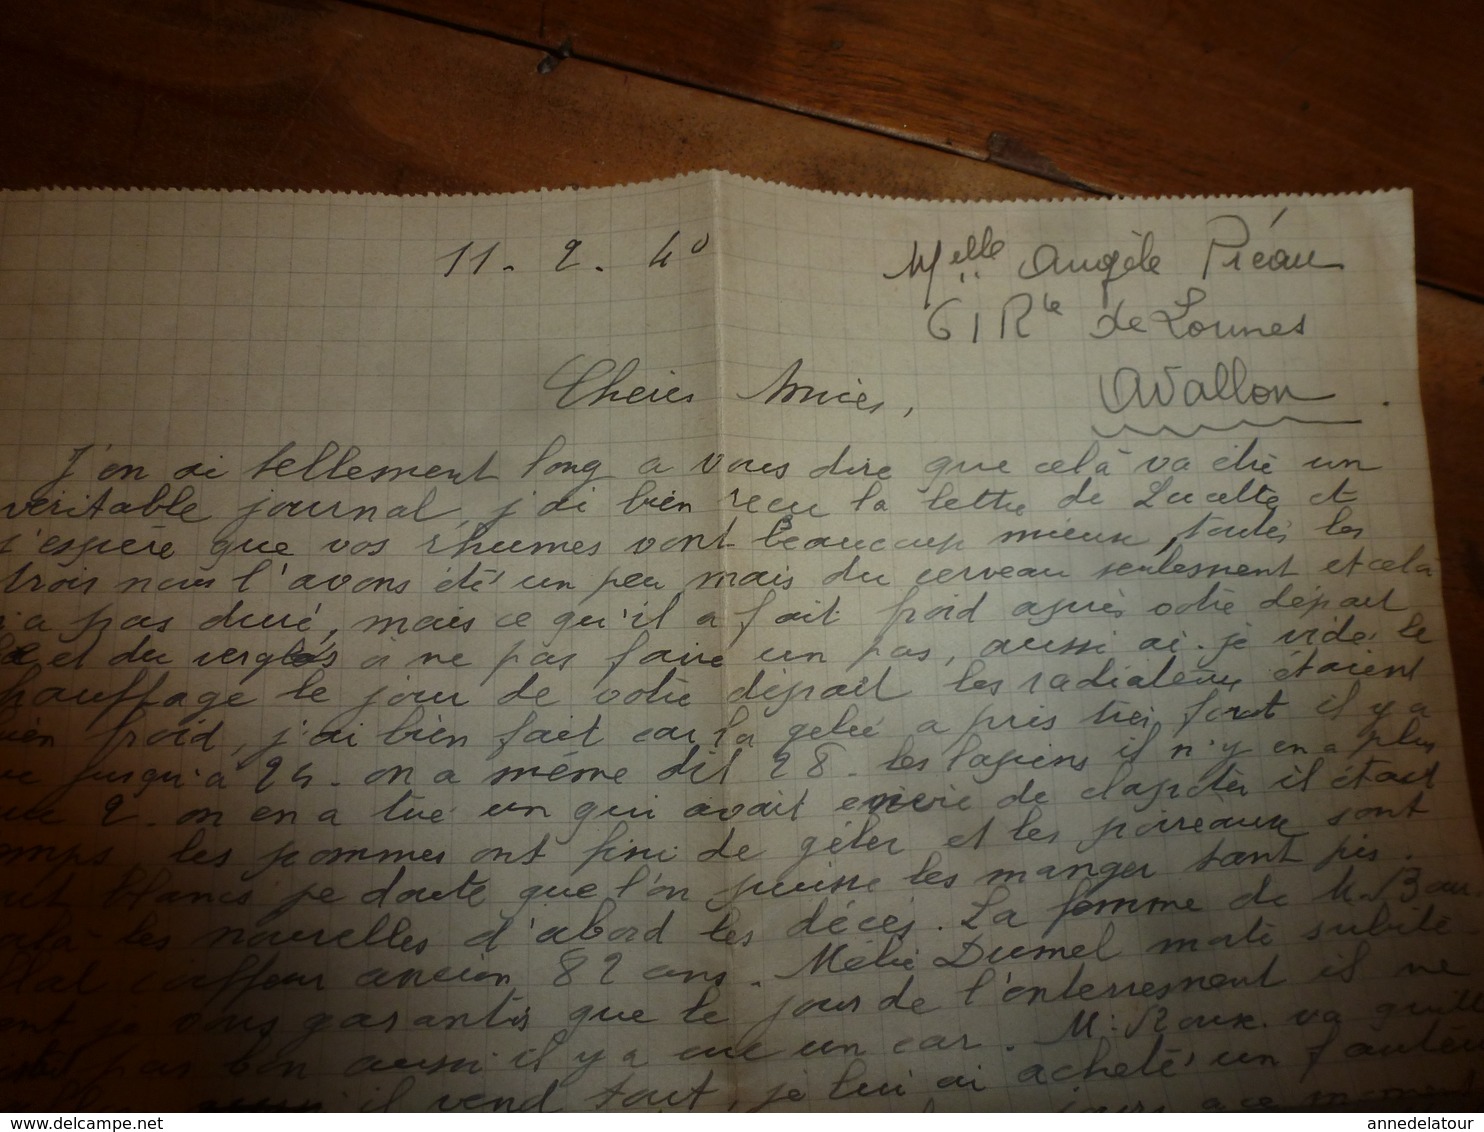 11 - 2 - 40
Melle Angèle Piéau
61 Rte de Lormes
Avallon
Cheres Amies,
J'en ai tellement long a vous dire que celà va être un
veritable journal, j'ai bien recu la lettre de Lucette et
j'espère que vos rhumes vont beaucoup mieux, toutes les
trois nous l'avons été un peu mais du cerveau seulement et cela
a pas duré, mais ce qu'il a fait froid après votre départ
et du verglas à ne pas faire un pas, aussi ai-je vidé le
chauffage le jour de votre départ les radiateurs étaient
bien froid, j'ai bien fait car la gelée a pris très fort il y a
jusqu'à 24 - on a même dit 28 - les lapins il n'y en a plus
que 2 - on en a tué un qui avait envie de clapoter il était
temps, les pommes ont fini de géler et les poireaux sont
tout blancs je doute que l'on puisse les manger tant pis.
les nouvelles d'abord les décès. La femme de M. Bau
coiffeur ancien 82 ans. Mélie Dumel morte subite
ment je vous garantis que le jour de l'enterrement il ne
pas bon aussi il y a eue un car. M. Roux va quitt
il vend tout, je lui ai acheté un fauteui
jours a ce moment
annedelatour